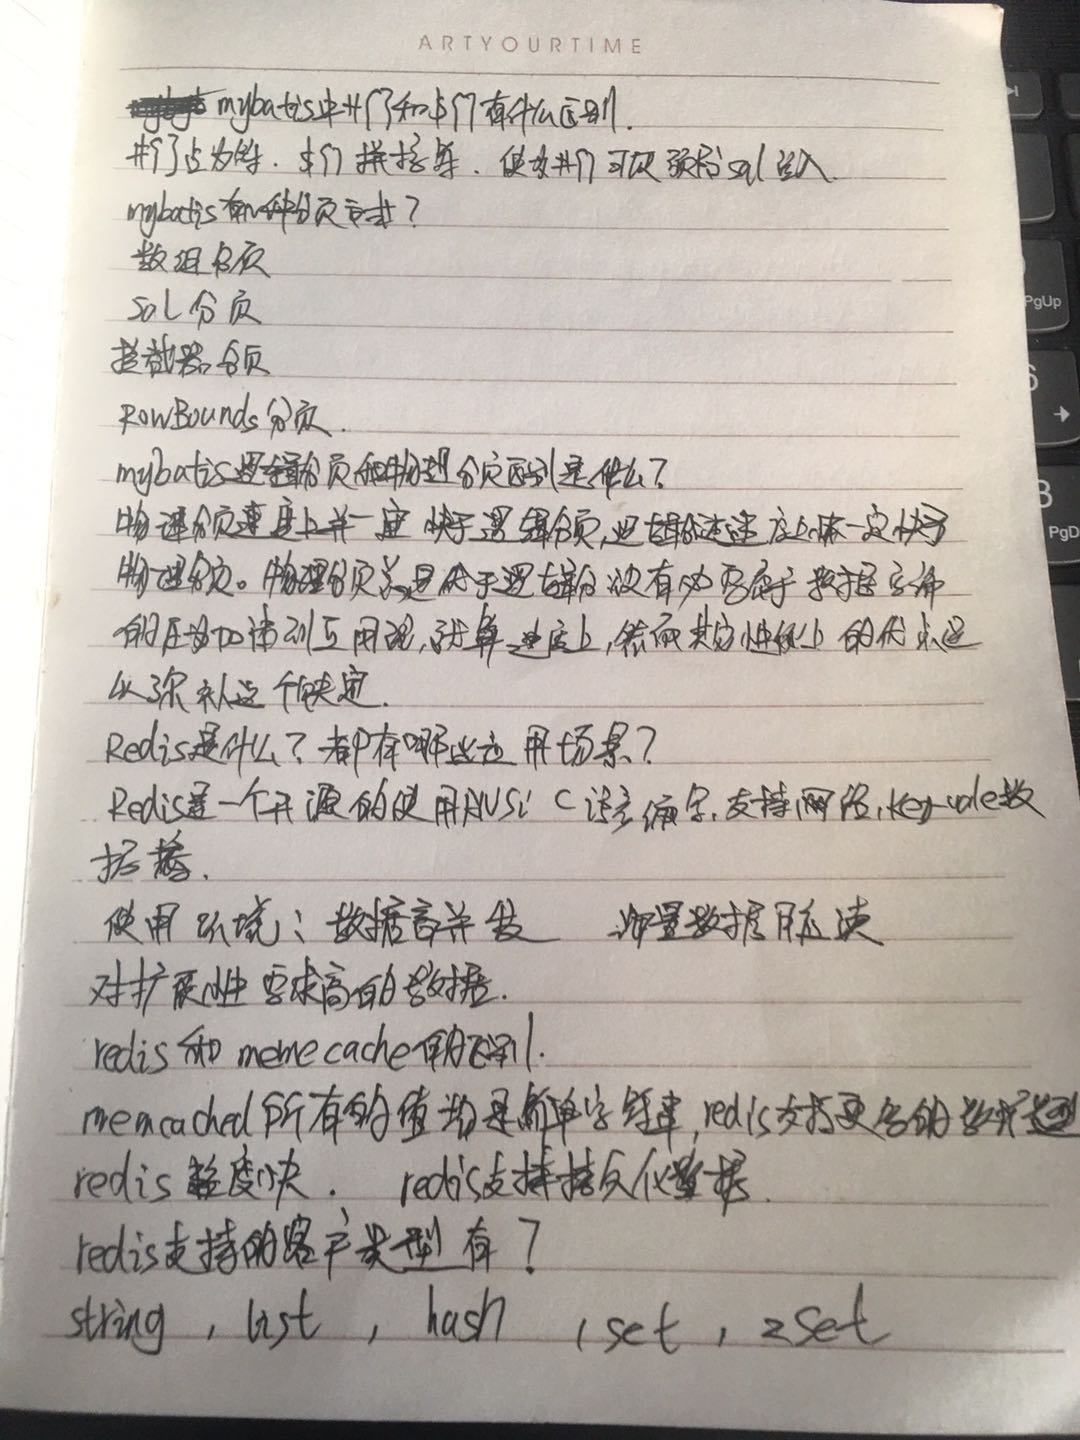 ARTYOURTIME
mybatis中#{}和${}有什么区别.
#{}占为符. ${}拼接符. 使用#{}可以预防sql注入.
mybatis有几种分页方式?
数组分页
Sql分页
拦截器分页
RowBounds分页.
mybatis逻辑分页和物理分页区别是什么?
物理分页速度上并一定快于逻辑分页,逻辑分速度上并一定快于
物理分页。物理分页总是优于逻辑分没有必要属于数据库端
的压力加诸到应用端,就算速度上,然而其它性能上的优点足
以弥补这个缺定.
Redis是什么?都有哪些应用场景?
Redis是一个开源的使用ANSi C语言编字.支持网络,key-vale数
据库.
使用环境: 数据高并发 海量数据读
对扩展性要求高的数据.
redis和memecache的区别.
memcached所有的值均是简单字符串,redis支持更多的数据类型
redis 速度快. redis支持持久化数据.
redis支持的客户类型有?
string , list , hash , set , zset
PgUp
6
3
PgD